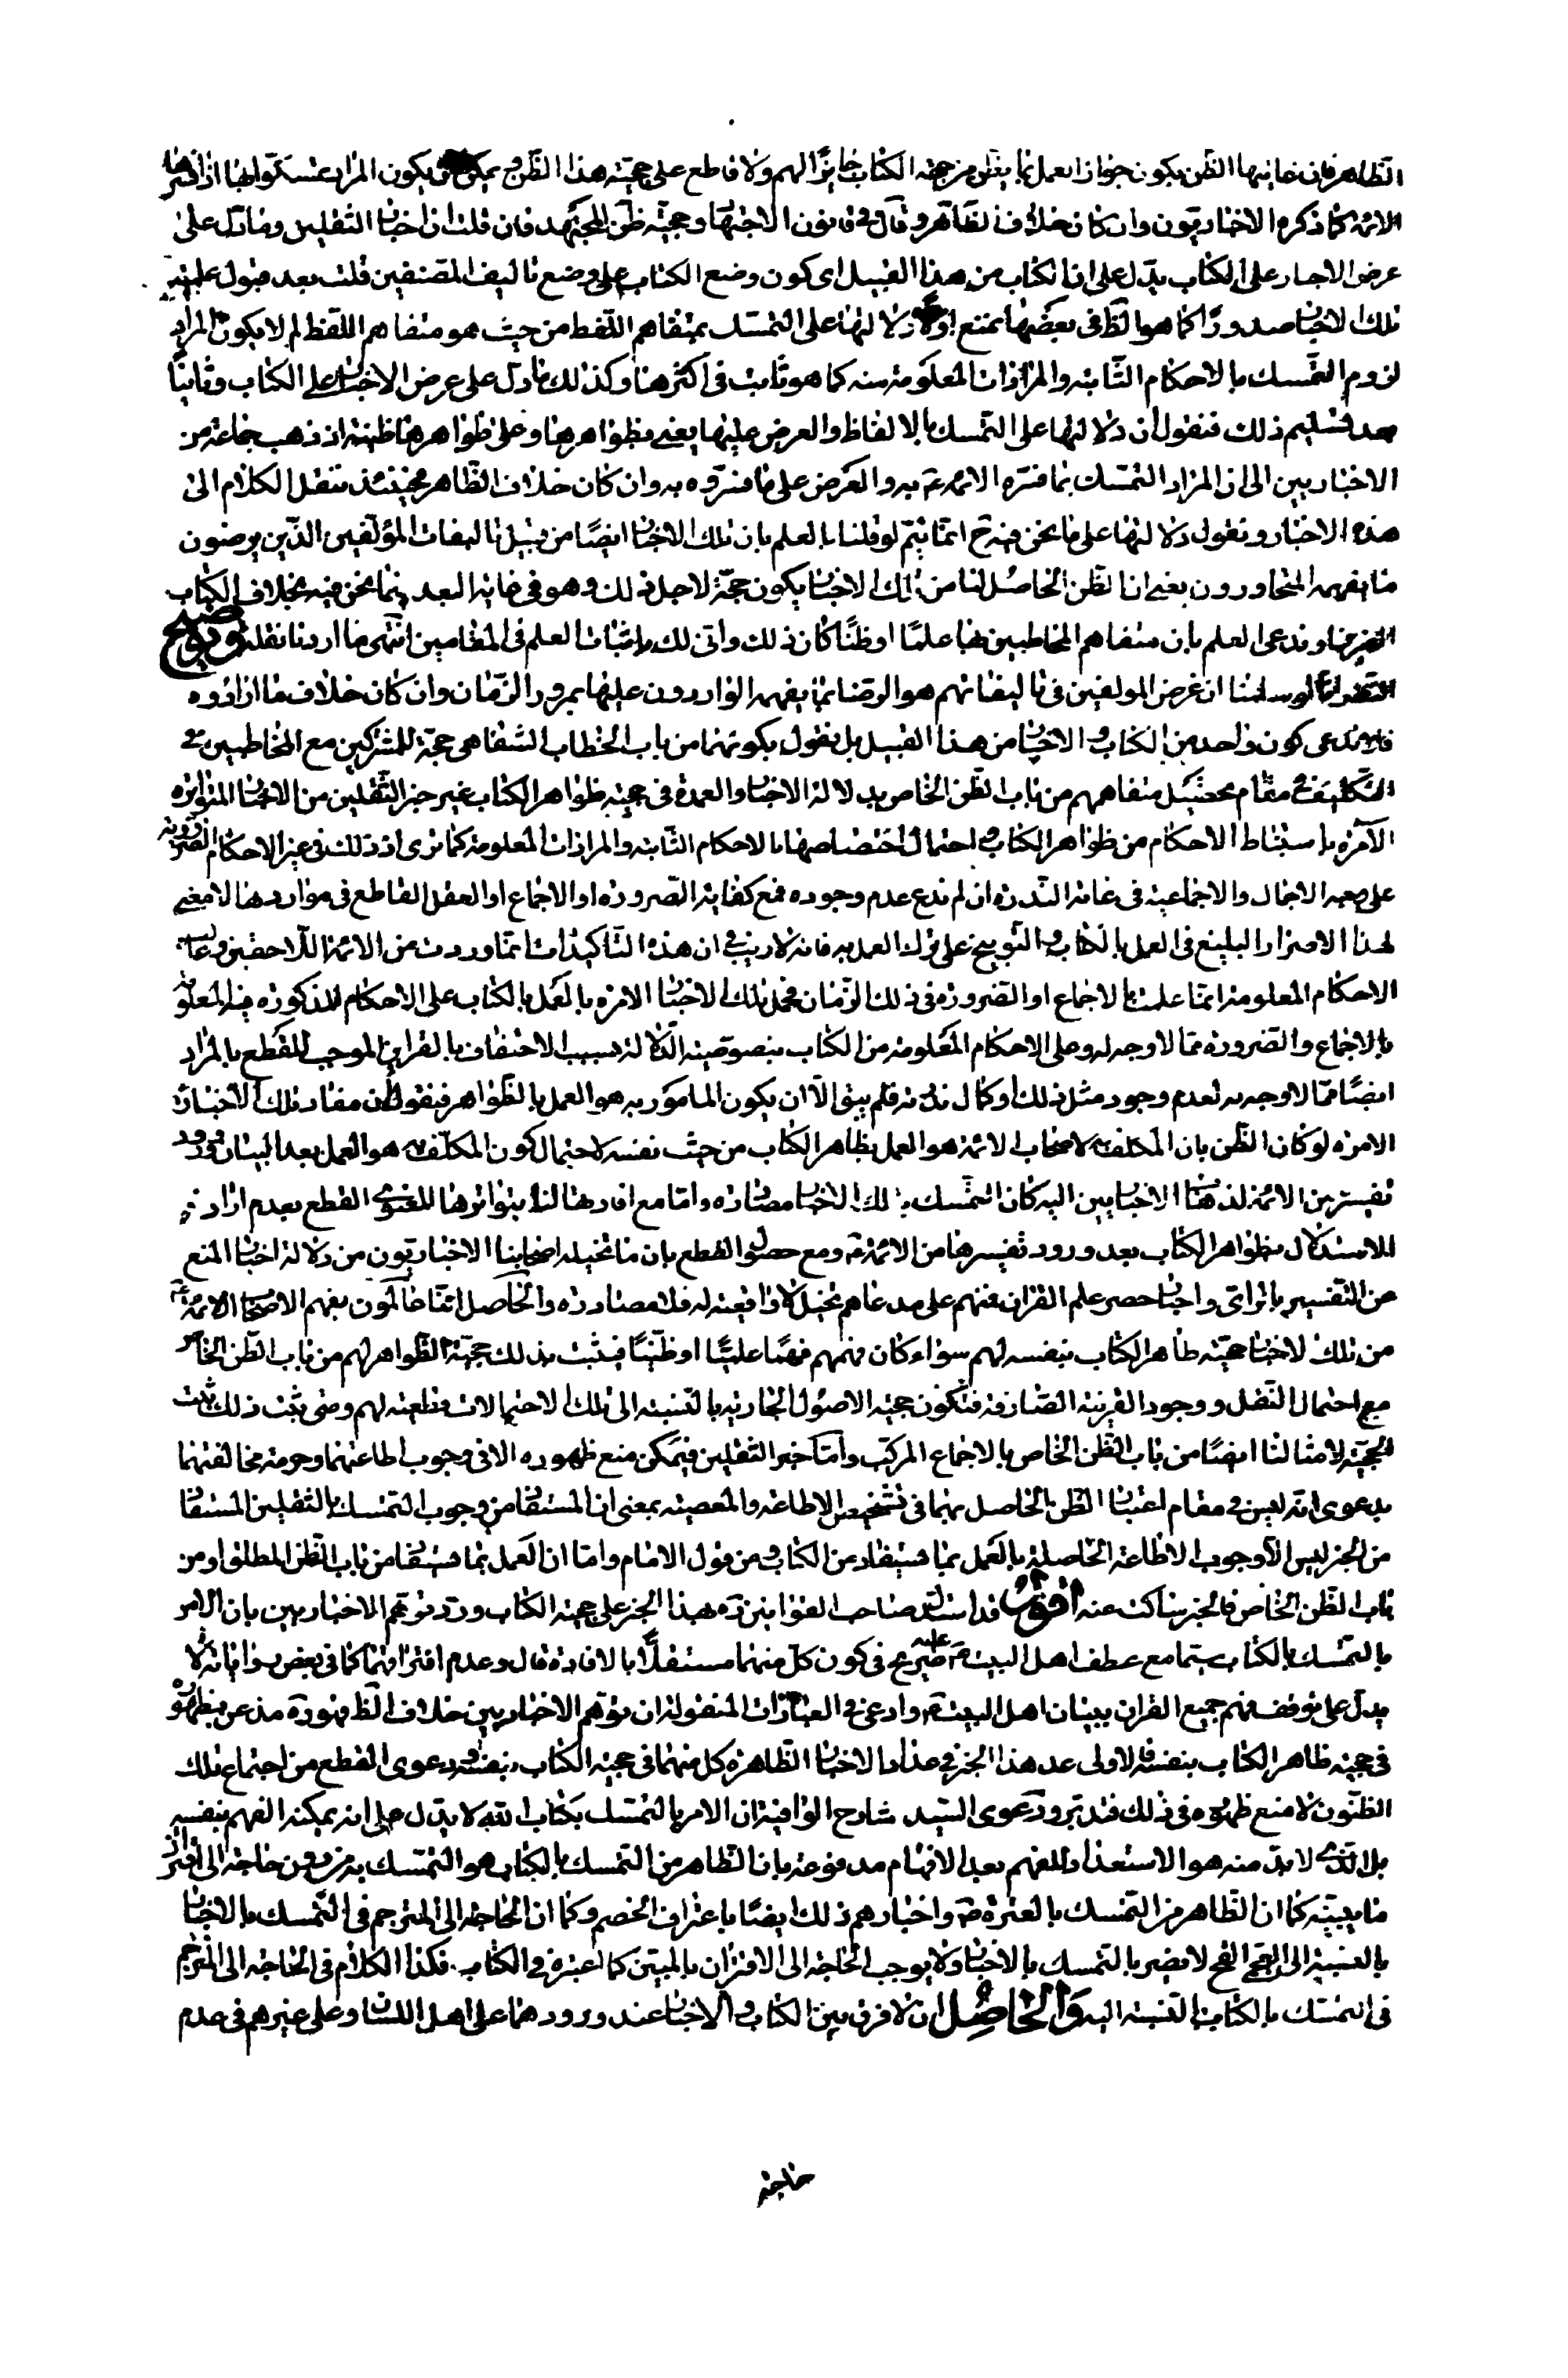 الظاهر فان غايتها الظن بكون جواز العمل بما يظن من جهة الكتاب جايزا لهم ولا قاطع على حجية هذا الظن و يمكن يكون المراد تمسكوا بها اذا فسرها
الائمة كما ذكره الاخباريون وان كان خلاف الظاهر وقال في قانون الاجتهاد وحجية ظن المجتهد فان قلت ان اخبار الثقلين وما دل على
عرض الاخبار على الكتاب يدل على ان الكتاب من هذا القبيل اى كون وضع الكتاب على وضع تاليف المصنفين قلت بعد قبول علمية
تلك الاخبار صدورا كما هو الظ في بعضها نمنع اولا دلالتها على التمسك بمتفاهم اللفظ من حيث هو متفاهم اللفظ لم لا يكون المراد
لزوم التمسك بالاحكام الثابتة والمرادات المعلومة منه كما هو ثابت في اكثرها وكذلك ما دل على عرض الاخبار على الكتاب وثانيا
بعد تسليم ذلك فنقول ان دلالتها على التمسك بالالفاظ والعرض عليها يعنى بظواهرها وعلى ظواهرها ظنية اذ ذهب جماعة من
الاخباريين الى ان المراد التمسك بما فسره الائمة ع به والعرض على ما فسروه به وان كان خلاف الظاهر فحينئذ ننقل الكلام الى
هذه الاخبار ونقول دلالتها على ما نحن فيه ح انما يتم لو قلنا بالعلم بان تلك الاخبار ايضا من قبيل تاليفات المؤلفين الذين يرضون
ما يفهمه المتحاورون يعنى ان الظن الحاصل لنا من تلك الاخبار يكون حجة لاجل ذلك وهو في غاية البعد فيما نحن فيه بخلاف الكتاب
العزيز وندعى العلم بان متفاهم المخاطبين بها علما او ظنا كان ذلك وانى لك باثبات العلم في المقامين انتهى ما اردنا نقله وتوضيح
لو سلمنا ان غرض المولفين في تاليفاتهم هو الرضا بما يفهمه الواردون عليها بمرور الزمان وان كان خلاف ما ارادوه
فلا ندعى كون واحد من الكتاب و الاخبار من هذا القبيل بل نقول بكونهما من باب الخطاب الشفاهى حجة للمشركين مع المخاطبين في
التكليف في مقام تحصيل متفاهمهم من باب الظن الخاص بدلالة الاخبار والعمدة في حجية ظواهر الكتاب غير خبر الثقلين من الاخبار المتواترة
الآمرة باستنباط الاحكام من ظواهر الكتاب و احتمال اختصاصها بالاحكام الثابتة والمرادات المعلومة كما ترى اذ ذلك في غير الاحكام الضرورية
على جهة الاجمال والاجماعية في غاية الندرة ان لم ندع عدم وجوده فمع كفاية الضرورة او الاجماع او العقل القاطع في مواردها لا معنى
لهذا الاصرار البليغ في العمل بالكتاب و التوبيخ على ترك العمل به فانه لا ريب في ان هذه التاكيدات انما وردت عن الائمة اللاحقين و
الاحكام المعلومة انما علمت بالاجماع او الضرورة في ذلك الزمان فحمل تلك الاخبار الامرة بالعمل بالكتاب على الاحكام المذكورة فيه المعلومة
بالاجماع والضرورة مما لا وجه له وعلى الاحكام المعلومة من الكتاب بنصوصية الدلالة بسبب الاحتفاف بالقراين الموجب للقطع بالمراد
ايضا مما لا وجه له لعدم وجود مثل ذلك او كمال ندرته فلم يبق الا ان يكون المامور به هو العمل بالظواهر فنقول ان مفاد تلك الاخبار
الامرة لو كان الظن بان المكلف به لاصحاب الائمة هو العمل بظاهر الكتاب من حيث نفسه لاحتمال كون المكلف به هو العمل بعد البيان وورود
تفسير من الائمة لذهاب الاخباريين اليه كان التمسك بتلك الاخبار مصادرة واما مع افادتها لنا بتواترها المعنوى القطع بعدم ارادة
الاستدلال بظواهر الكتاب بعد ورود تفسيرها من الائمة ع ومع حصول القطع بان ما تخيله اصحابنا الاخباريون من دلالة اخبار المنع
عن التفسير بالراى واخبار حصر علم القران فيهم على مدعاهم تخيل لا واقعية له فلا مصادرة والحاصل اننا عالمون بفهم الاصحاب الائمة ع
من تلك الاخبار حجية ظاهر الكتاب بنفسه لهم سواء كان فهمهم فهما علميا او ظنيا فيثبت بذلك حجية الظواهر لهم من باب الظن الخاص
مع احتمال النقل ووجود القرينة الصارفة فتكون حجية الاصول الجارية بالنسبة الى تلك الاحتمالات قطعية لهم ومتى ثبت ذلك ثبت
الحجية لامثالنا ايضا من باب الظن الخاص بالاجماع المركب واما خبر الثقلين فيمكن منع ظهوره الا في وجوب اطاعتهما وحرمة مخالفتهما
بدعوى انه ليس في مقام اعتبار الظن الحاصل بهما في تشخيص الاطاعة والمعصية بمعنى ان المستفاد من وجوب التمسك بالثقلين المستفاد
من الخبر ليس الا وجوب الاطاعة الحاصلة بالعمل بما يستفاد من الكتاب و من قول الامام واما ان العمل بما يستفاد من باب الظن المطلق او من
باب الظن الخاص فالخبر ساكت عنه اقول قد استدل صاحب القوانين ره بهذا الخبر على حجية الكتاب ورد توهم الاخباريين بان الامر
بالتمسك بالكتاب سيما مع عطف اهل البيت ع عليه صريح في كون كل منهما مستقلا بالافادة قال وعدم افتراقهما كما في بعض رواياته لا
يدل على توقف فهم جميع القران ببيان اهل البيت ع وادعى في العبارات المنقولة ان توهم الاخباريين خلاف الظ
في حجية ظاهر الكتاب بنفسه فالاولى عد هذا الخبر في عداد الاخبار الظاهرة كل منهما في حجية الكتاب بنفسه ودعوى القطع من اجتماع تلك
الظنون لا منع ظهوره في ذلك فتدبر ودعوى السيد شارح الوافية ان الامر بالتمسك بكتاب الله لا يدل على انه يمكنه الفهم بنفسه
بل الذى لا بد منه هو الاستعداد للفهم بعد الافهام مدفوعة بان الظاهر من التمسك بالكتاب هو التمسك به من دون حاجة الى اقتران
ما يبينه كما ان الظاهر من التمسك بالعترة ع واخبارهم ذلك ايضا باعتراف الخصم وكما ان الحاجة الى المترجم في التمسك بالاخبار
بالنسبة الى العجمى القح لا يضر بالتمسك بالاخبار ولا يوجب الحاجة الى الاقتران بالمبين كما اعتبره في الكتاب فكذا الكلام في الحاجة الى المترجم
في التمسك بالكتاب بالنسبة اليه والحاصل ان لا فرق بين الكتاب و الاخبار عند ورودهما على اهل اللسان وعلى غيرهم في عدم
حاجة